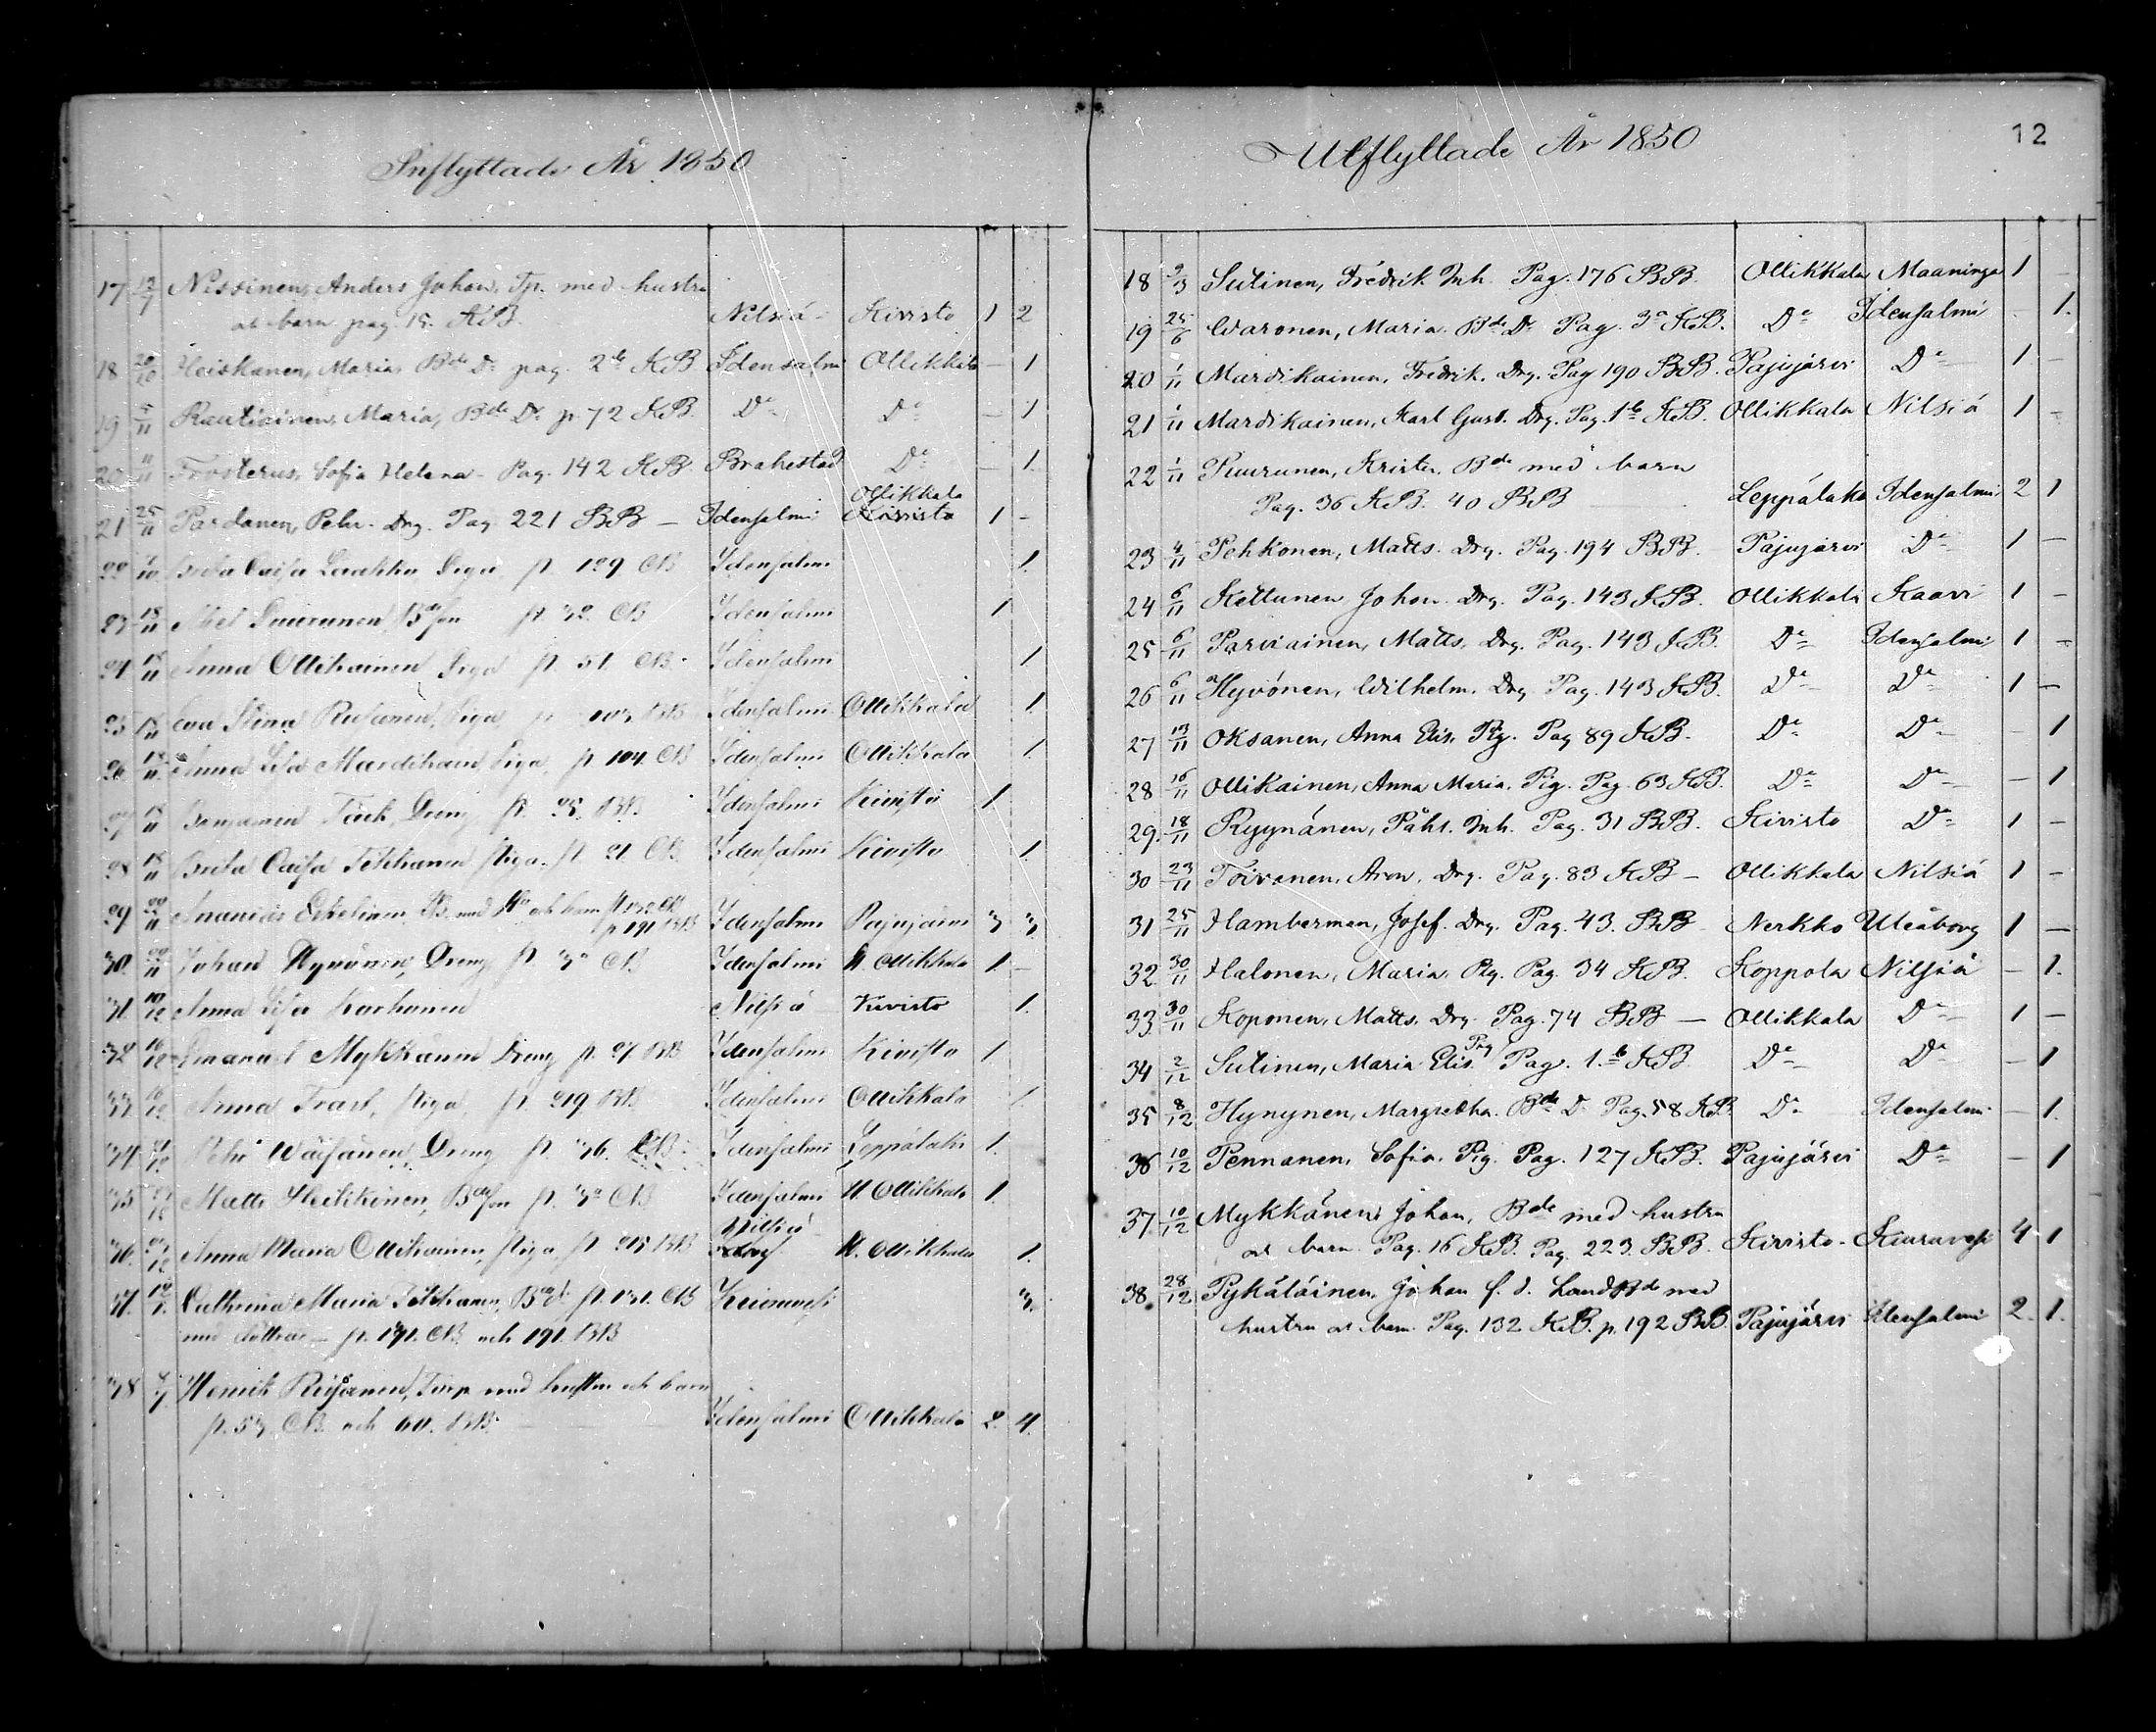 Inflyttade År 1850
17 12/7 Nissinen, Anders Johan, Tp. med hustru
oc barn pag. 15. KB. Nilsiä Kivisto 1 2
18 20/10 Heiskanen, Maria Bde Dr pag. 2 KB Idensalmi Ollikkala — 1
19 5/11 Rautiainen, Maria, Bde Dr p 72 KB. Do Do — 1
20 11/11 Frosterus, Sofia Helena - Pag. 142 KB Brahestad Do — 1
Ollikkala
21 25/11 Pardanen, Pehr. Drg. Pag 221 BB — Idensalmi Kivisto 1 -
22 Brita Caisa Laakko Piga p. 129. CB Idensalmi 1.
23 18/11 Mick Puurunen, Bdeson p. 32. CB Idensalmi 1
24 18/11 Anna Ollikainen Piga p. 51. CB. Idensalmi 1
25 18/11 Eva Stina Rusanen, Piga, p. BB Idensalmi Ollikkala 1.
26 18/11 Anna Lisa Mardikain, Piga, p 104. CB Idensalmi Ollikkala 1.
27 18/11 Benjamin Täck, Dreng p. 25. BB. Idensalmi Kivistö 1
28 18/11 Brita Caisa Tikkanen piga. p. 21. CB Idensalmi Kivisto 1.
29 29/11 Ananias Eskelinen B. med Ho och barn p 132 CB
p 191 BB Idensalmi Pajujärvi 3 3
30. 29/11 Johan Hyvönen, Dreng p. 3a CB Idensalmi N. Ollikkala 1. —
31. 10/12 Anna Lisa Korhonen Nilsiä Kivisto 1.
32 16/12 Emanuel Mykkänen Dreng p. 27. BB Idensalmi Kivisto 1.
33 16/12 Anna Trast, piga, p. 219 BB Idensalmi Ollikkala 1
34. 21/12 Pehr Wäisänen, Dreng p. 36. CB. Idensalmi Leppälaks 1.
35. 21/12 Matts Heikkinen, Bdeson p. 3a CB Idensalmi N. Ollikkala 1.
Nilsiä
36. 27/12 Anna Maria Ollikainen, piga, p. 215 BB N. Ollikkala 1.
37. Cathrina Maria Tikkanen, Bde p. 131. CB Kiuruvesi 3.
med döttrar — p. 191. CB och 191. BB
38 Henrik Rusanen, Torp med hustru och barn
p. 53. CB och 60. BB. Idensalmi Ollikkala 2. 4.
Utflyttade År 1850
12
18 9/3 Sutinen, Fredrik Inh. Pag. 176 BB. Ollikkala Maaninga 1 —
19 25/6 Waronen, Maria. Bde Dr Pag. 3a KB. Do Idensalmi — 1.
20 1/11 Mardikainen, Fredrik. Drg. Pag 190 BB. Pajujärvi Do 1 —
21 1/11 Mardikainen, Karl Gust. Drg. Pag. 1b KB. Ollikkala Nilsiä 1 -
22 1/11 Puurunen, Krister. Bde med barn
Pag. 36 KB. 40 BB Leppälaks Idensalmi 2 1
23 4/11 Pehkonen, Matts. Drg. Pag. 194 BB. Pajujärvi Do 1 —
24 6/11 Kettunen Johan. Drg. Pag. 143 KB. Ollikkala Kaavi 1 -
25 6/11 Parviainen, Matts. Drg. Pag. 143 KB. Do Idensalmi 1 -
26 6/11 Hyvönen, Wilhelm. Drg Pag. 143 KB. Do Do 1 —
27 13/11 Oksanen, Anna Elis. Pg. Pag 89 KB. Do Do — 1
28 16/11 Ollikainen, Anna Maria. Pig. Pag. 63 KB. Do Do — 1
29. 18/11 Ryynänen, Påhl. Inh. Pag. 31 BB. Kivisto Do 1 —
30 23/11 Toivanen, Aron. Drg. Pag. 83 KB — Ollikkala Nilsiä 1 —
31 25/11 Hamberman, Josef. Drg. Pag. 43. BB Nerkko Uleåborg 1 —
32 30/11 Halonen, Maria. Pig. Pag. 34 KB. Koppola Nilsiä — 1.
33. 30/11 Koponen, Matts. Drg. Pag. 74 BB — Ollikkala Do 1 —
34 2/12 Sutinen, Maria Elis. Pig Pag. 1.b KB Do Do — 1
35 8/12 Hynynen, Margretha. Bde D. Pag. 58 KB Do Idensalmi — 1.
36 10/12 Pennanen, Sofia. Pig. Pag. 127 KB. Pajujärvi Do — 1
37. 10/12 Mykkänen, Johan, Bde med hustru
oc barn. Pag. 16 KB. Pag. 223. BB. Kivisto - Kiuruvesi 4 1
38. 28/12 Pykäläinen, Johan f. d. LandsBde med
hustru oc barn. Pag. 132 KB. p. 192 BB. Pajujärvi Idensalmi 2. 1.